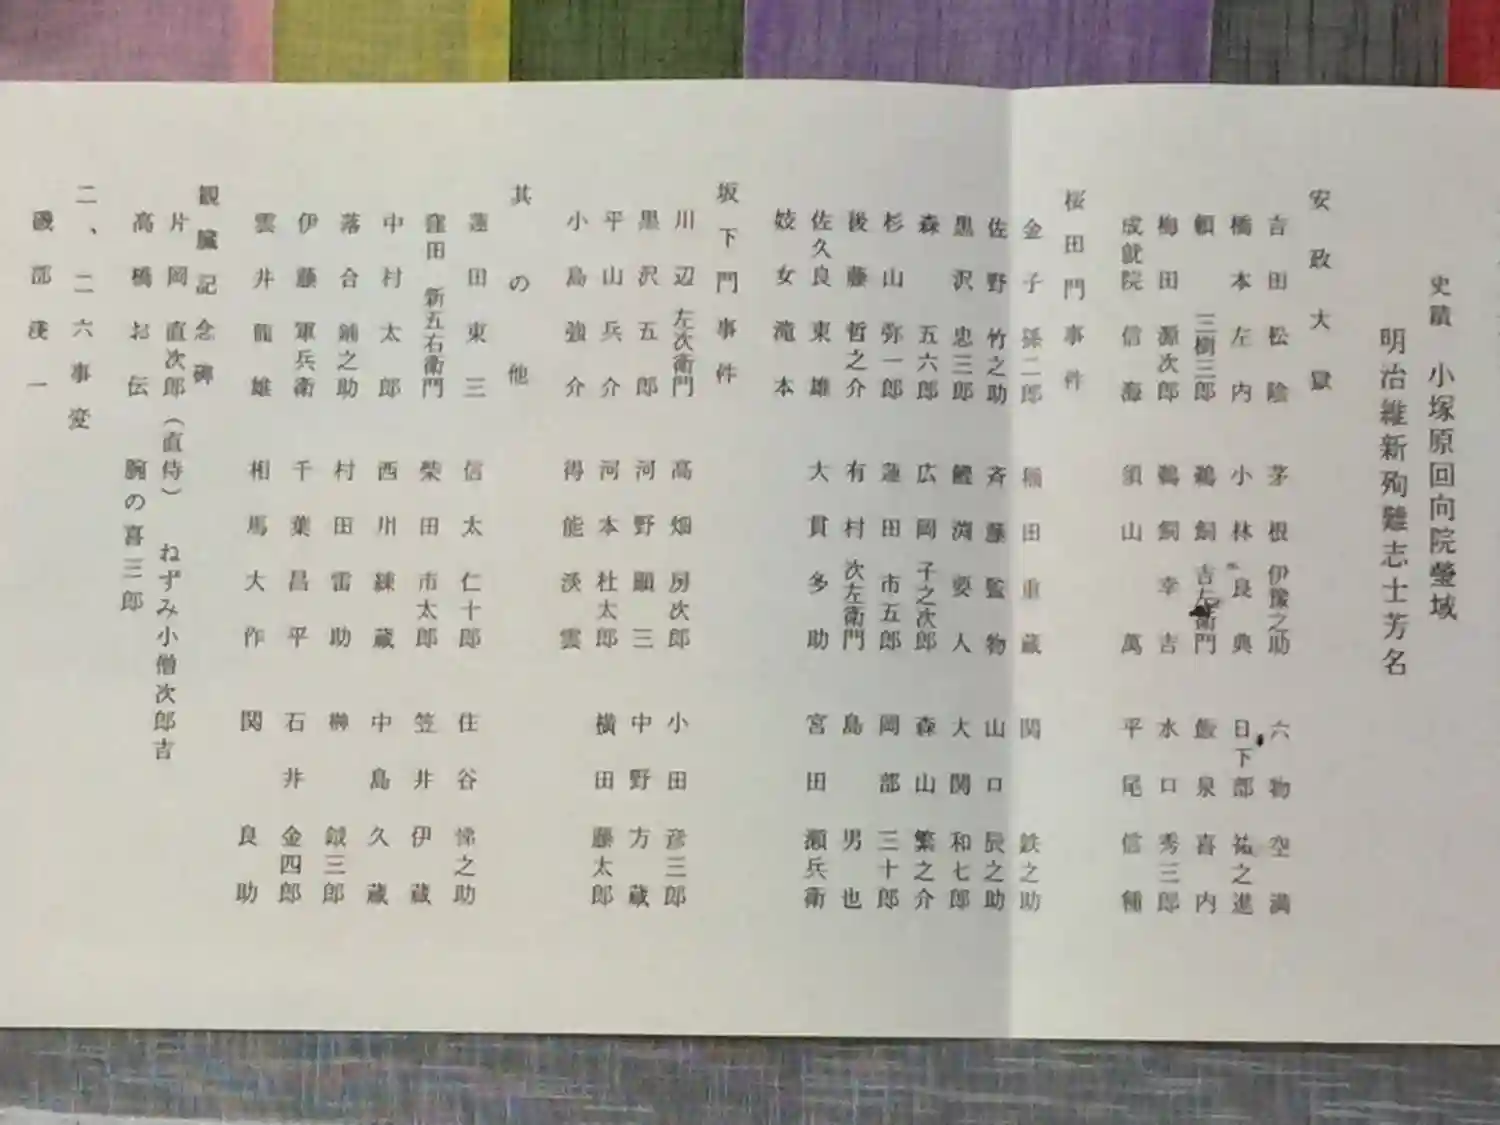 史蹟 小塚原回向院塋域
明治維新殉難志士芳名
安政大獄
吉田松陰 茅根伊豫之助 六物空満
橋本左内 小林良典 日下部祐之進
頼三樹三郎 鵜飼吉左衛門 飯泉喜内
梅田源次郎 鵜飼幸吉 水口秀三郎
成就院信海 須山萬 平尾信種
桜田門事件
金子孫二郎 稲田重蔵 関鉄之助
佐野竹之助 斉藤監物 山口辰之助
黒沢忠三郎 鯉渕要人 大関和七郎
森五六郎 広岡子之次郎 森山繁之介
杉山弥一郎 蓮田市五郎 岡部三十郎
後藤哲之介 有村次左衛門 島男也
佐久良東雄 大貫多助 宮田瀬兵衛
妓女滝本
坂下門事件
川辺左次衛門 高畑房次郎 小田彦三郎
黒沢五郎 河野顕三 中野方蔵
平山兵介 河本杜太郎 横田藤太郎
小島強介 得能淡雲
其の他
蓮田東三 信太仁十郎 住谷悌之助
窪田新五右衛門 柴田市太郎 笠井伊蔵
中村太郎 西川練蔵 中島久蔵
落合鋪之助 村田雷助 榊鉞三郎
伊藤軍兵衛 千葉昌平 石井金四郎
雲井龍雄 相馬大作 関良助
観臓記念碑
片岡直次郎(直侍) ねずみ小僧次郎吉
高橋お伝 腕の喜三郎
二、二六事変
磯部浅一